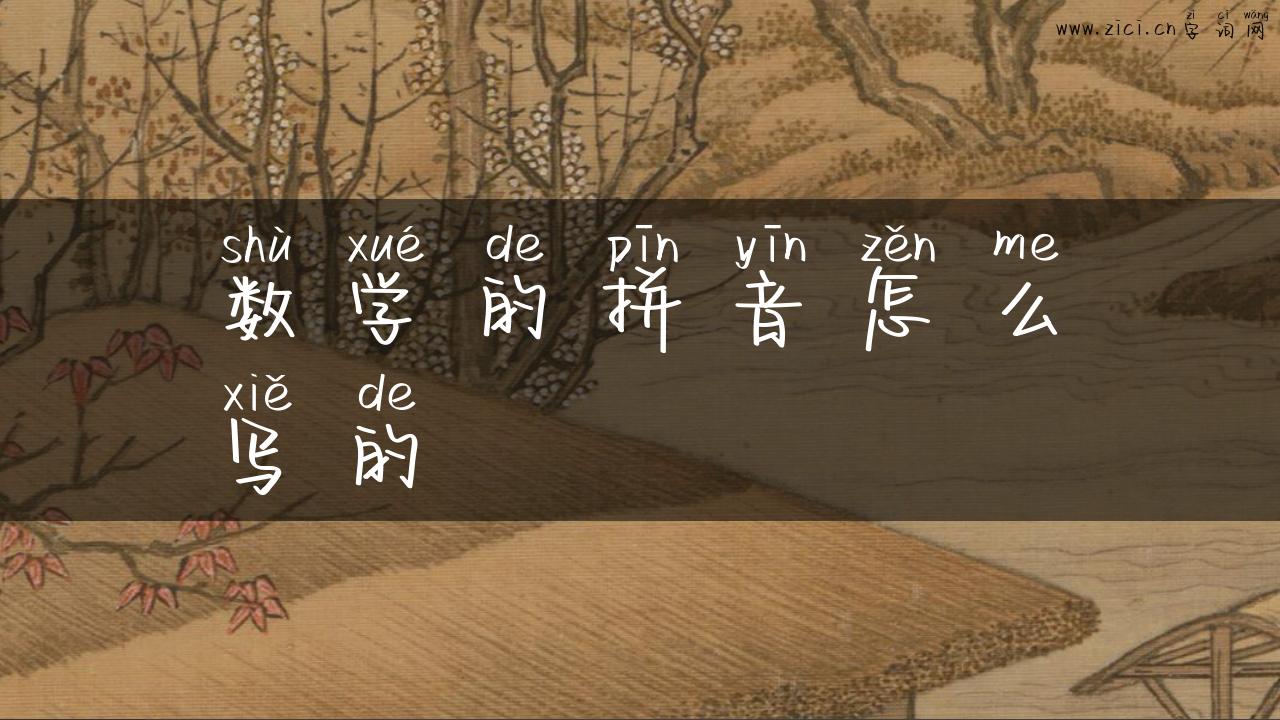 zì cí wǎng
www.zici.cn字词网
shù xué de pīn yīn zěn me
数学的拼音怎么
xiě de
写的